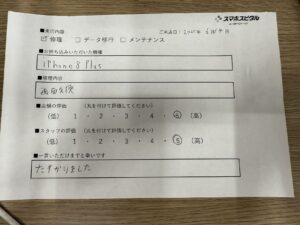 スマホスピタル
■来店内容
ご来店日：
☑ 修理 □ データ移行 □ メンテナンス
■お持ち込みいただいた機種
iPhone 8 Plus
■修理内容
画面交換
■店舗の評価 (丸を付けて評価してください)
(低) 1 ・ 2 ・ 3 ・ 4 ・ 5 (高)
■スタッフの評価 (丸を付けて評価してください)
(低) 1 ・ 2 ・ 3 ・ 4 ・ 5 (高)
■一言いただけますと幸いです
たすかりました